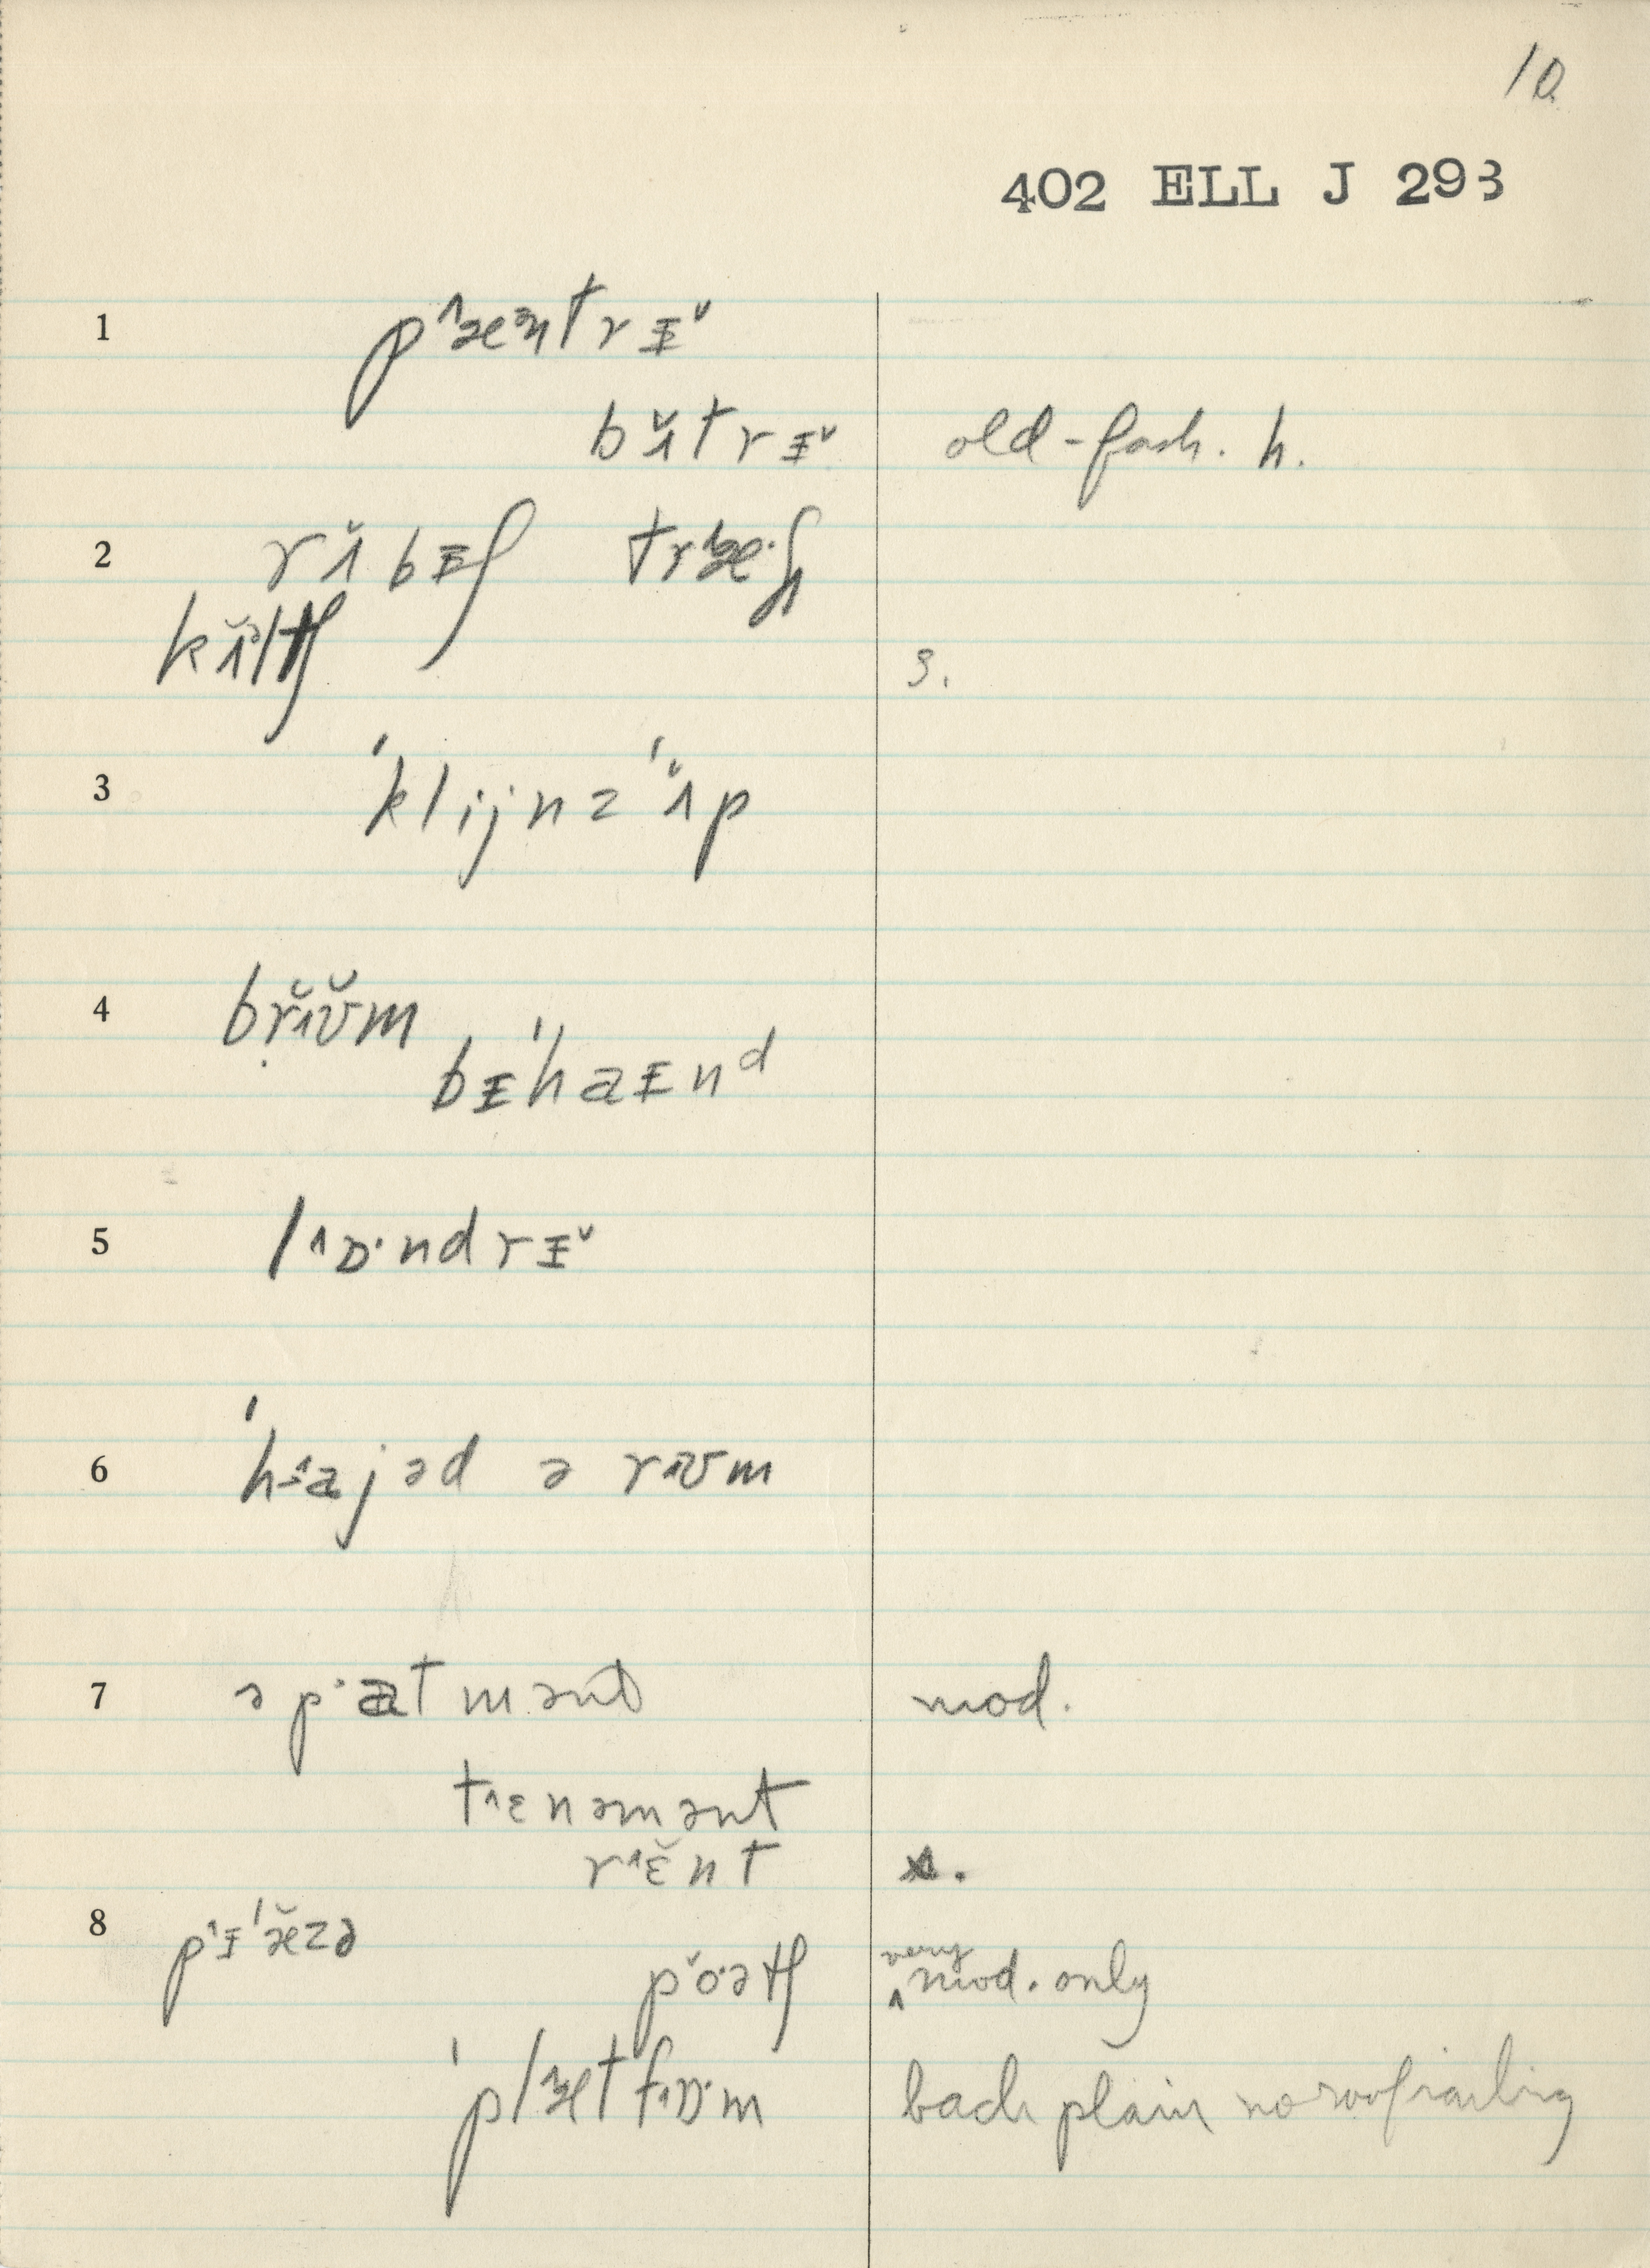 10.
402 ELL J 293
1 p˄æɜntrɪ̵˅
bʌ̆trɪ̵˅ old-fash. h.
2 rʌ̆bɪ̵ʃ træ·ʃ
kʌ̆ltʃ s.
3 ˈklijnz ˈʌ̆p
4 brʉ̆m
bɪ̵ˈhaɪ̵nᵈ
5 l˄ɒ·ndrɪ̵˅
6 ˈh˄ajəd ə rʉm
7 əp·atmənt mod.
t˄ɛnəmənt
r˄ɛ̆nt
8 p˄ɪ̵ˈæ̆zə
pŏ·ətʃ very mod. only
ˈpl˄ætf˄ɒ·m back plain no roof railing